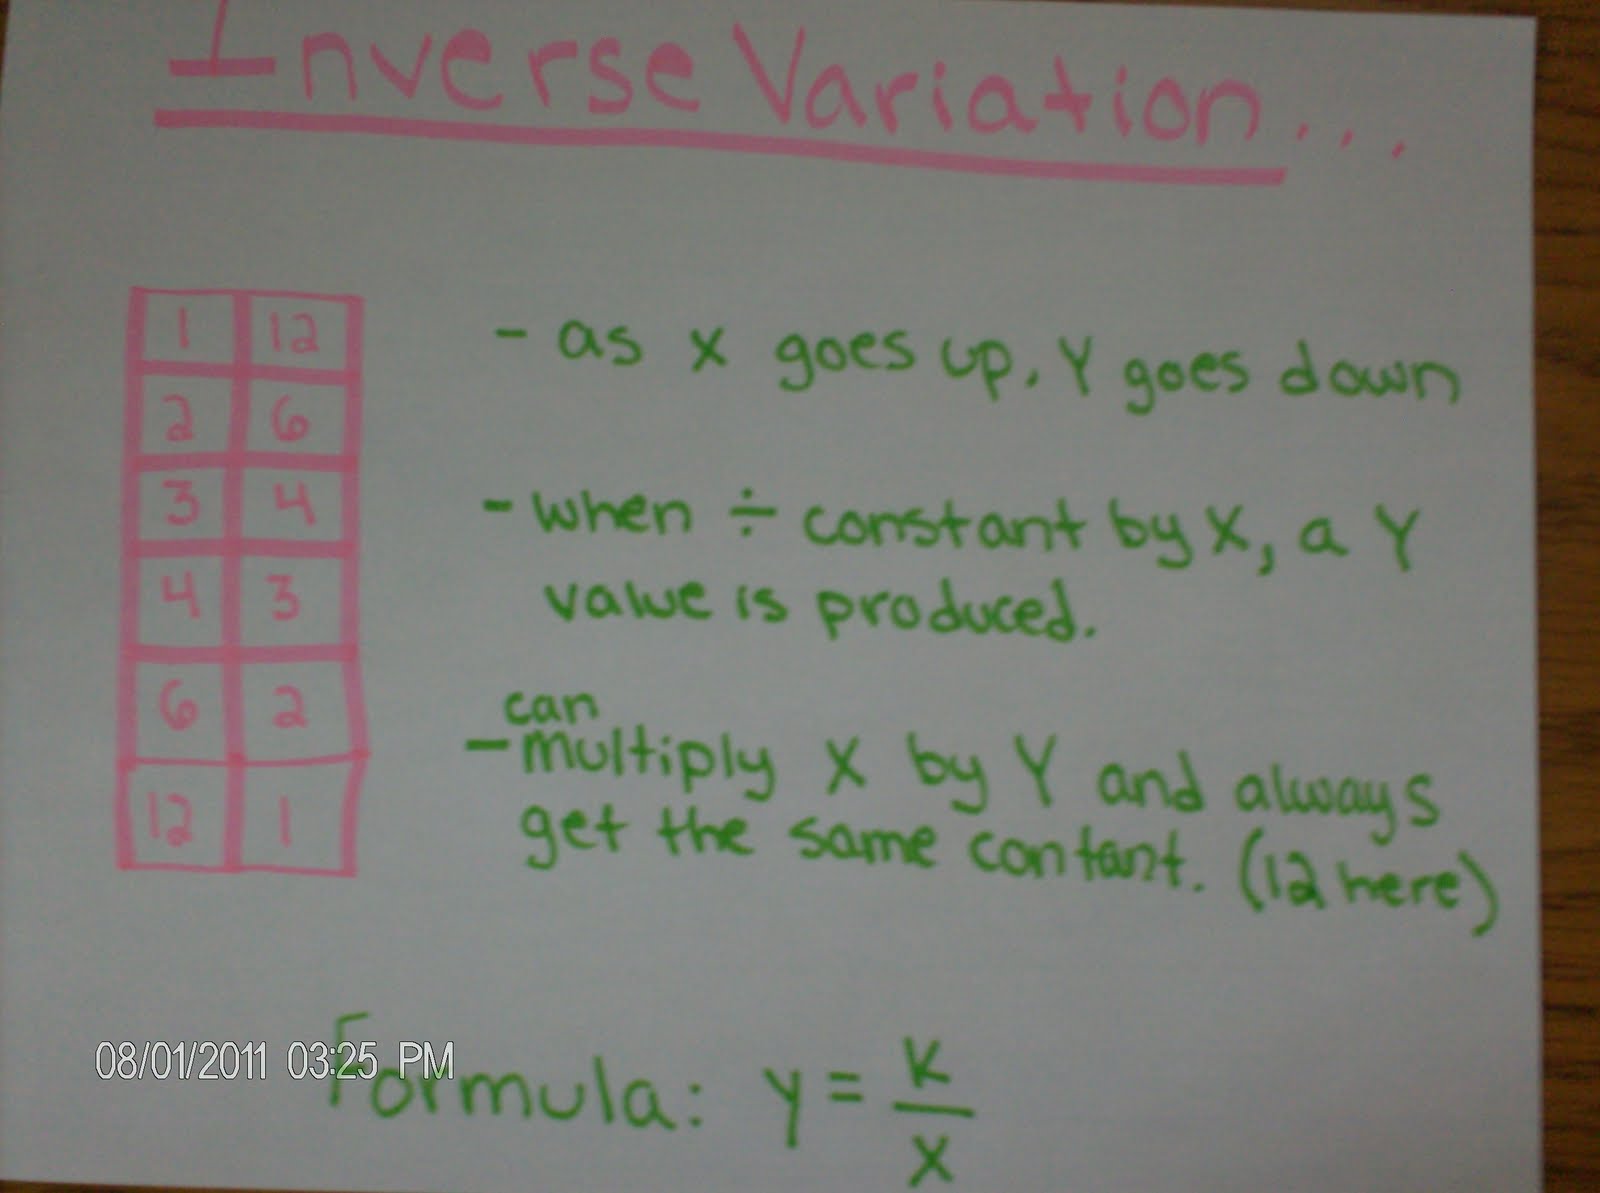 Inverse Variation...
1 12
2 6
3 4
4 3
6 2
12 1
- as x goes up, Y goes down
- when ÷ constant by X, a Y
value is produced.
can
- multiply X by Y and always
get the same contant. (12 here)
08/01/2011 03:25 PM
Formula: y = K/X